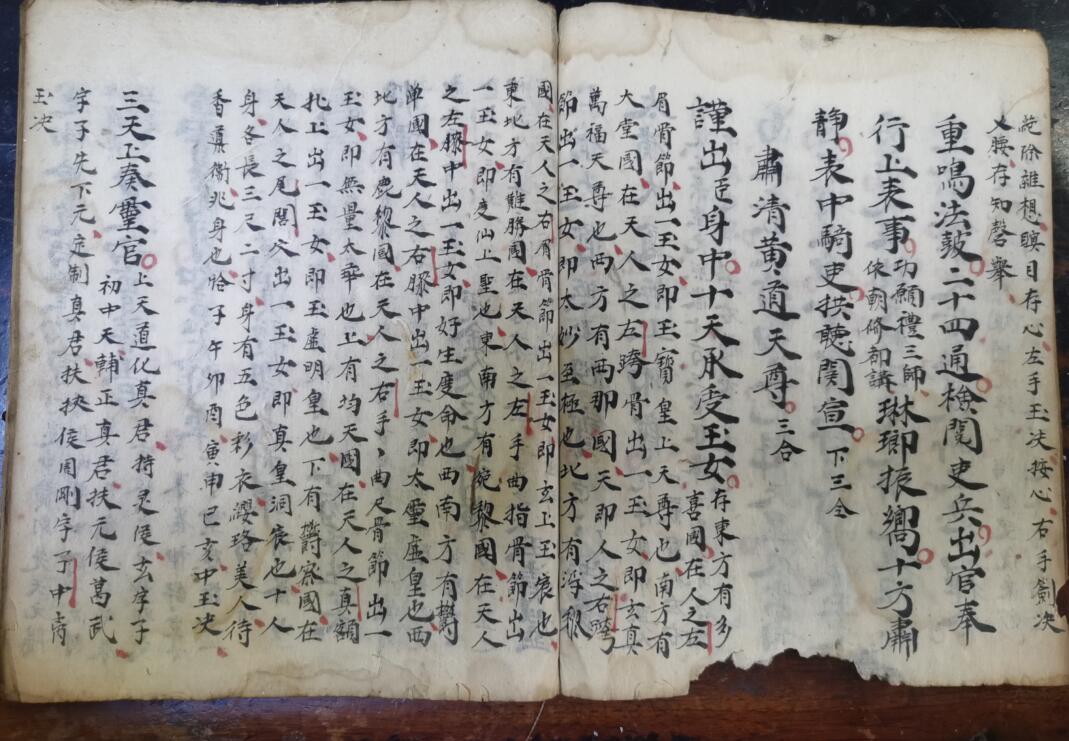 蕋除雜想、瞋目存心、左手玉决按心、右手劍决
乂腰、存知磬舉
重鳴法鼓二十四通檢閱吏兵出官奉
行上表事功願禮三師依朝修都講琳瑯振嚮十方肅
靜表中騎吏拱聽関宣下三仝
肅清黃道天尊三合
謹出臣身中十天承受玉女存東方有多喜國、在人之左
眉骨節、出一玉女即玉寶皇上天尊也、南方有
大堂國、在天人之左跨骨出一玉女即玄真
萬福天尊也西方有西那國天即人之右跨
節出一玉女即太妙至極也北方有浮黎
國、在天人之右眉骨節出一玉女即玄上玉宸也、
東北方有難勝國、在天人之左手曲指骨節出
一玉女、即度仙上聖也、東南方有宛黎國、在天人
之左膝中出一玉女、即好生度命也西南方有欝
單國、在天人之右膝中出一玉女即太靈虛皇也西
北方有鹿黎國、在天人之右手、曲尺骨節出一
玉女、即無量太華也上有均天國、在天人之真額
扎上出一玉女、即玉虛明皇也、下有欝宻國在
天人之尾閭穴出一玉女即真皇洞宸也十人
身、各長三尺二寸、身有五色彩衣瓔珞美人、待
香真衛兆身也恰子午卯酉、寅申巳亥、中玉决
三天上奏靈官上天道化真君、持灵俟、玄字子
初中天輔正真君、扶元俟、葛武
字子失下元、定制真君、扶抉俟周剛字子中
玉决